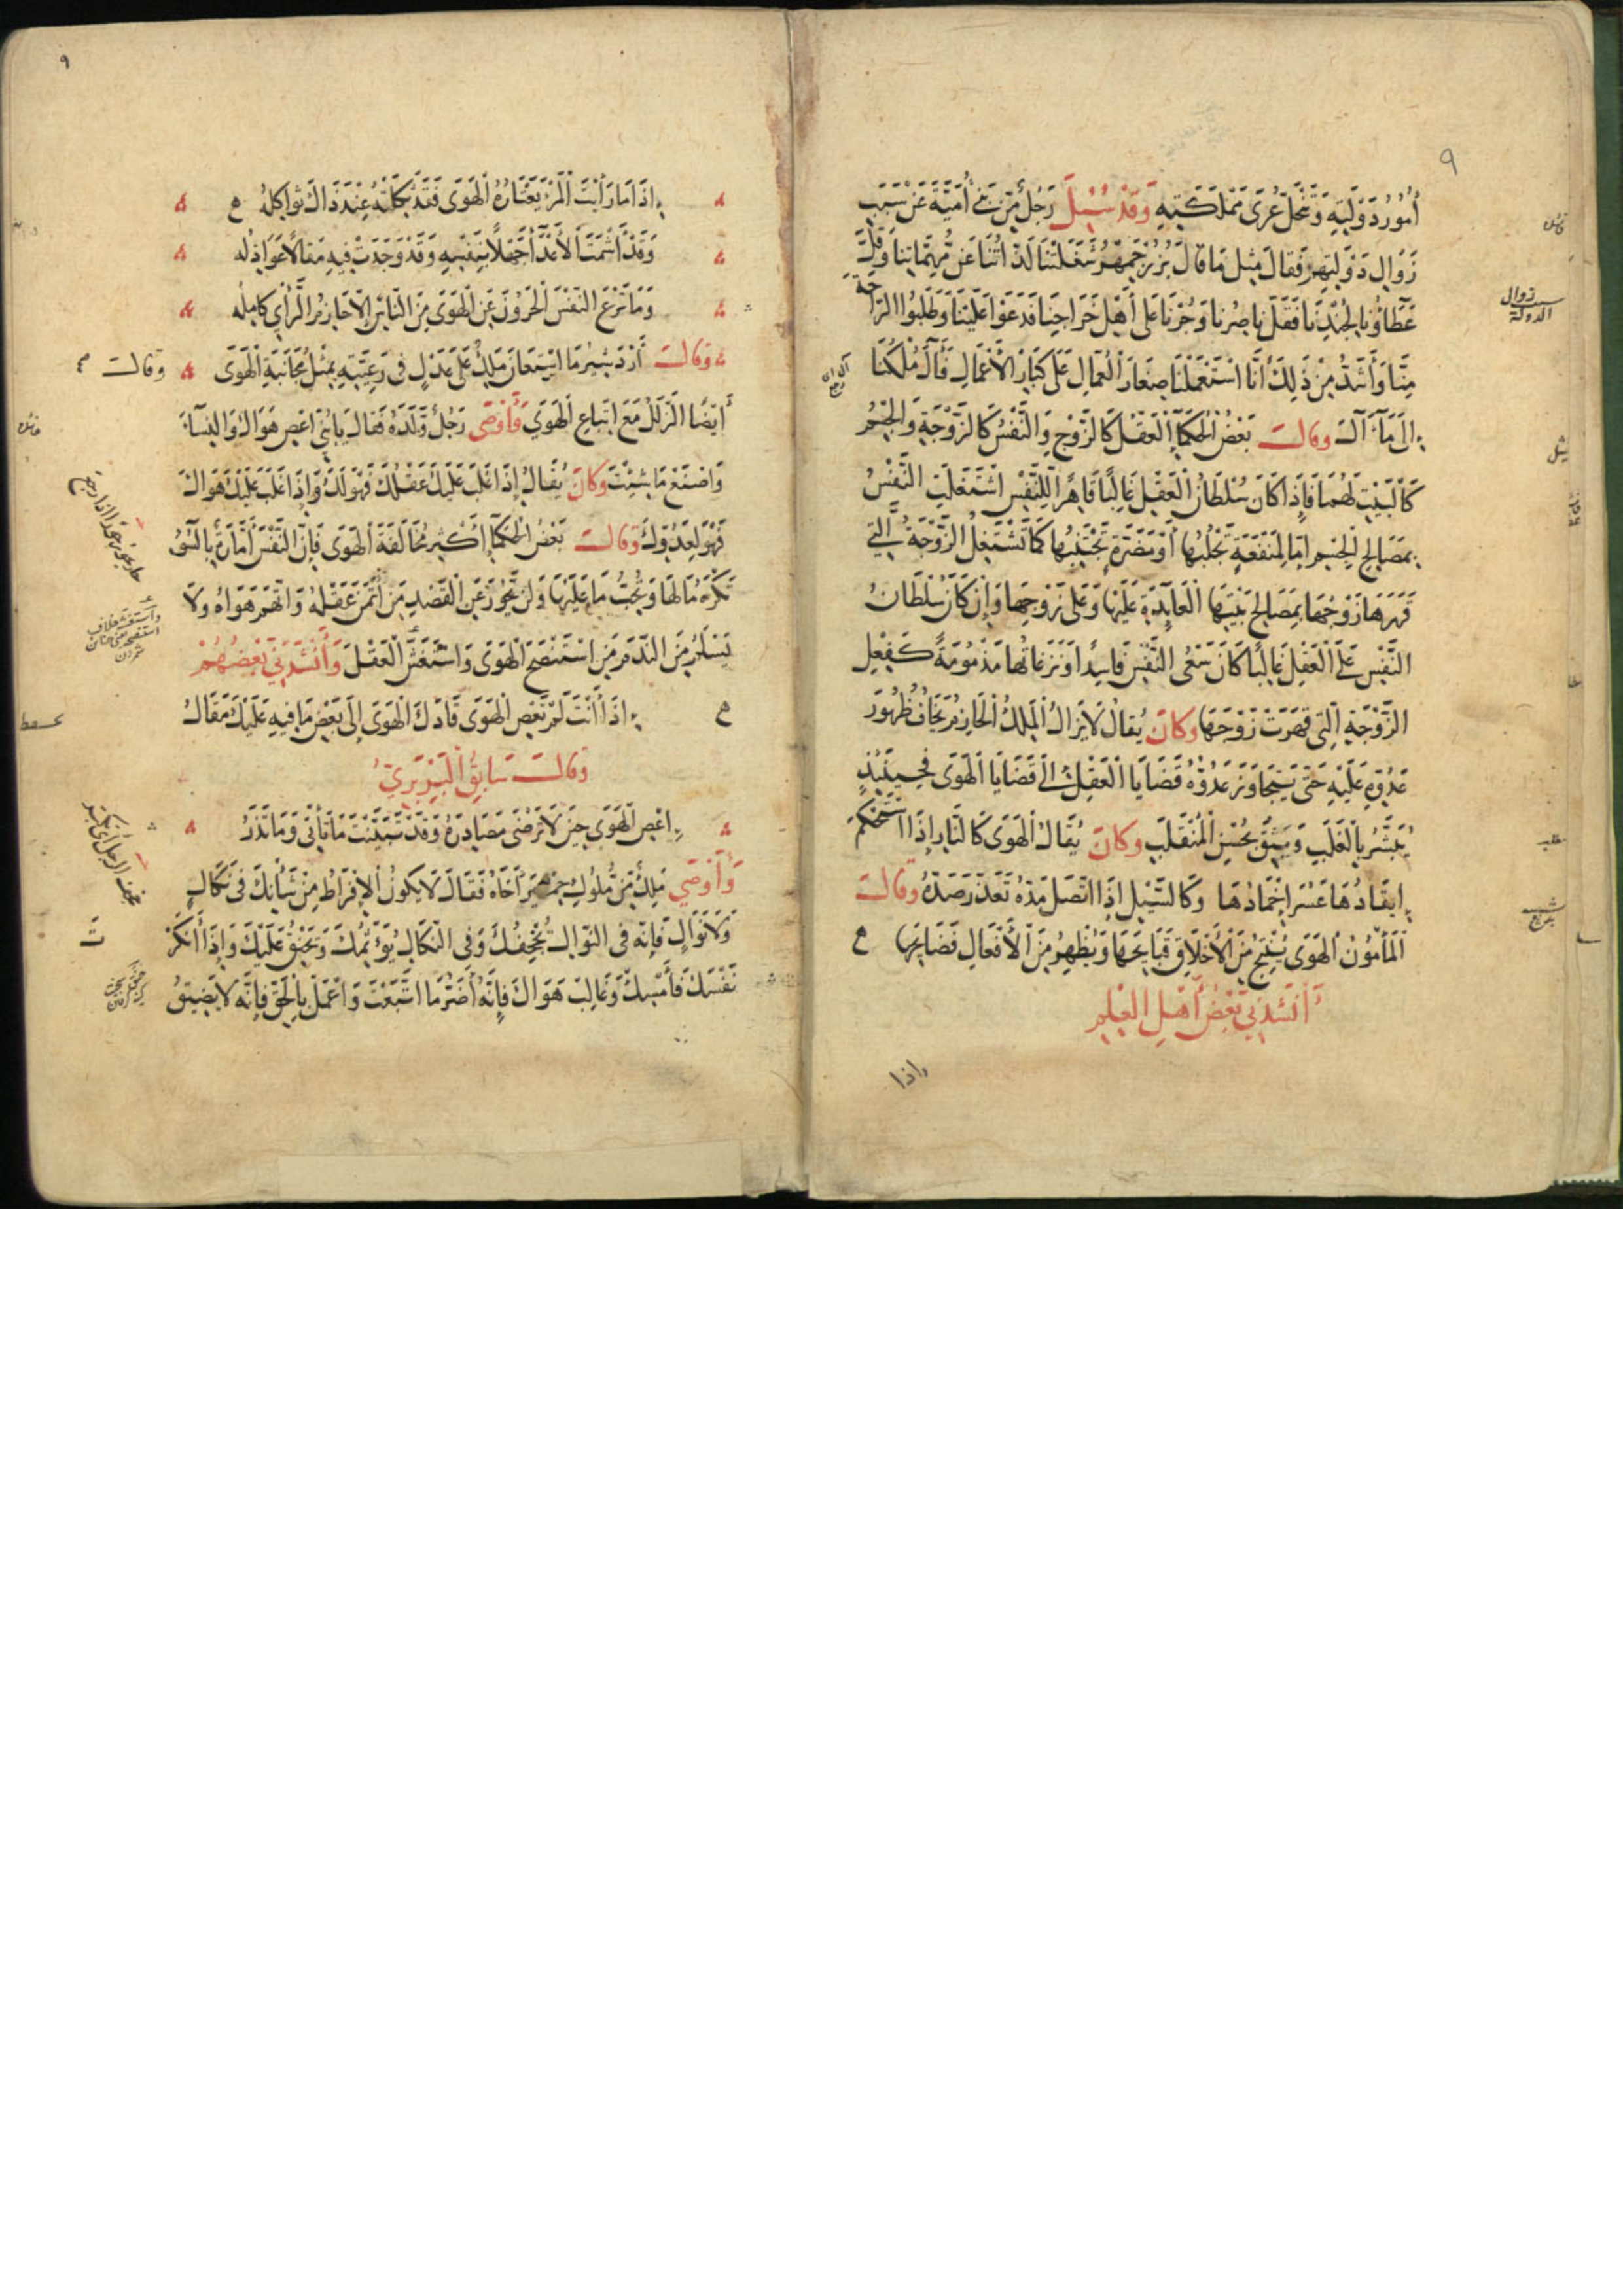 ٩
أُمُورُ دَوْلَتِهِ وَتَنْحَلُّ عُرَى مَمْلَكَتِهِ وَقَدْ سُئِلَ رَجُلٌ مِنْ بَنِي أُمَيَّةَ عَنْ سَبَبِ
زَوَالِ دَوْلَتِهِمْ فَقَالَ مِثْلَ مَا قَالَ بُزُرْجَمِهْرُ شَغَلَتْنَا لَذَّاتُنَا عَنْ مُهِمَّاتِنَا وَقَلَّ
عَطَاؤُنَا لِجُنْدِنَا فَقَلَّ نَاصِرُنَا وَجُرْنَا عَلَى أَهْلِ خَرَاجِنَا فَدَعَوْا عَلَيْنَا وَطَلَبُوا الرَّاحَةَ
مِنَّا وَأَشَدُّ مِنْ ذَلِكَ أَنَّا اسْتَعْمَلْنَا صِغَارَ الْعُمَّالِ عَلَى كِبَارِ الْأَعْمَالِ فَآلَ مُلْكُنَا
إِلَى مَا آلَ وقالَ بَعْضُ الْحُكَمَاءِ الْعَقْلُ كَالزَّوْجِ وَالنَّفْسُ كَالزَّوْجَةِ وَالْجِسْمُ
كَالْبَيْتِ لَهُمَا فَإِذَا كَانَ سُلْطَانُ الْعَقْلِ غَالِبًا قَاهِرًا لِلنَّفْسِ اشْتَغَلَتِ النَّفْسُ
بِمَصَالِحِ الْجِسْمِ إِمَّا لِمَنْفَعَةٍ تَجْلُبُهَا أَوْ مَضَرَّةٍ تَجْتَنِبُهَا كَمَا تَشْتَغِلُ الزَّوْجَةُ الَّتِي
قَهَرَهَا زَوْجُهَا بِمَصَالِحِ بَيْتِهَا الْعَايِدَةِ عَلَيْهَا وَعَلَى زَوْجِهَا وَإِنْ كَانَ سُلْطَانُ
النَّفْسِ عَلَى الْعَقْلِ غَالِبًا كَانَ سَعْيُ النَّفْسِ فَاسِدًا وَنَزَغَاتُهَا مَذْمُومَةً كَفِعْلِ
الزَّوْجَةِ الَّتِي قَهَرَتْ زَوْجَهَا وكانَ يُقالُ لَا يَزَالُ الْمَلِكُ الْحَازِمُ يَخَافُ ظُهُورَ
عَدُوِّهِ عَلَيْهِ حَتَّى يَتَجَاوَزَ عَدُوُّهُ قَضَايَا الْعَقْلِ إِلَى قَضَايَا الْهَوَى فَحِينَئِذٍ
يُبَشَّرُ بِالْغَلَبِ وَيَثِقُ بِحُسْنِ الْمُنْقَلَبِ وكانَ يُقَالُ الْهَوَى كَالنَّارِ إِذَا اسْتَحْكَمَ
إِيقَادُهَا عَسُرَ إِخْمَادُهَا وَكَالسَّيْلِ إِذَا اتَّصَلَ مَدُّهُ تَعَذَّرَ صَدُّهُ وقالَ
الْمَأْمُونُ الْهَوَى يُنْتِجُ مِنَ الْأَخْلَاقِ قَبَايِحَهَا وَيُظْهِرُ مِنَ الْأَفْعَالِ فَضَايِحَهَا
أَنْشَدَنِي بَعْضُ أَهْلِ الْعِلْمِ
اذا
سبب زوال الدولة
٩
إِذَا مَا رَأَيْتَ الْمَرْءَ يَعْتَادُهُ الْهَوَى فَقَدْ ثَكِلَتْهُ عِنْدَ ذَاكَ ثَوَاكِلُهُ
وَقَدْ أَشْمَتَ الْأَعْدَاءَ جَهْلًا بِنَفْسِهِ وَقَدْ وَجَدَتْ فِيهِ مَقَالًا عَوَاذِلُه
وَمَا تَزَعُ النَّفْسَ الْحَرُونَ عَنِ الْهَوَى مِنَ النَّاسِ إِلَّا حَازِمُ الرَّأْيِ كَامِلُه
وقالَ أَرْدَشِيرُ مَا اسْتَعَانَ مَلِكٌ عَلَى عَدْلٍ فِي رَعِيَّتِهِ بِمِثْلِ مُجَانَبَةِ الْهَوَى وقالَ
أَيْضًا الزَّلَلُ مَعَ اتِّبَاعِ الْهَوَى وَأَوْصَى رَجُلٌ وَلَدَهُ فَقَالَ يَا بُنَيَّ اعْصِ هَوَاكَ وَالنِّسَاءَ
وَاصْنَعْ مَا شِئْتَ وكانَ يُقَالُ إِذَا غَلَبَ عَلَيْكَ عَقْلُكَ فَهُوَ لَكَ وَإِذَا غَلَبَ عَلَيْكَ هَوَاكَ
فَهُوَ لِعَدُوِّكَ وقالَ بَعْضُ الْحُكَمَاءِ أَكْثِرْ مُخَالَفَةَ الْهَوَى فَإِنَّ النَّفْسَ أَمَّارَةٌ بِالسُّوءِ
تَكْرَهُ مَا لَهَا وَتُحِبُّ مَا عَلَيْهَا وَلَنْ يَجُوزَ عَنِ الْقَصْدِ مَنِ ائْتَمَنَ عَقْلَهُ وَاتَّهَمَ هَوَاهُ وَلَا
يَسْلَمُ مِنَ النَّدَمِ مَنِ اسْتَنْصَحَ الْهَوَى وَاسْتَغَشَّ الْعَقْلَ وَأَنْشَدَنِي بَعْضُهُمْ
إِذَا أَنْتَ لَمْ تَعْصِ الْهَوَى قَادَكَ الْهَوَى إِلَى بَعْضِ مَا فِيهِ عَلَيْكَ مَقَالُ
وقالَ سَابِقُ الْبَرْبَرِيُّ
اعْصِ الْهَوَى حِينَ لَا تَرْضَى مَصَادِرَهُ وَقَدْ تَبَيَّنْتَ مَا تَأْتِي وَمَا تَذَرُ
وَأَوْصَى مَلِكٌ مِنْ مُلُوكِ حِمْيَرَ أَخَاهُ فَقَالَ لَا يَكُونُ الْإِفْرَاطُ مِنْ شَأْنِكَ فِي نَكَالٍ
وَلَا نَوَالٍ فَإِنَّهُ فِي النَّوَالِ يُجْحِفُكَ وَفِي النَّكَالِ يُؤَثِّمُكَ وَيُحْنِقُ عَلَيْكَ وَإِذَا أَنْكَرْتَ
نَفْسَكَ فَأَمْسِكْ وَغَالِبْ هَوَاكَ فَإِنَّهُ أَضَرُّ مَا اتَّبَعْتَ وَاعْمَلْ بِالْحَقِّ فَإِنَّهُ لَا يَضِيقُ